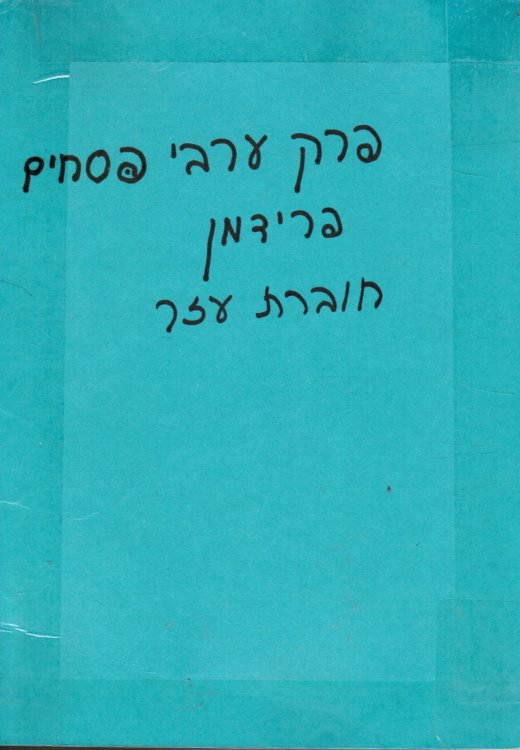 פרק ערבי פסחים
פרידמן
חוברת עזר